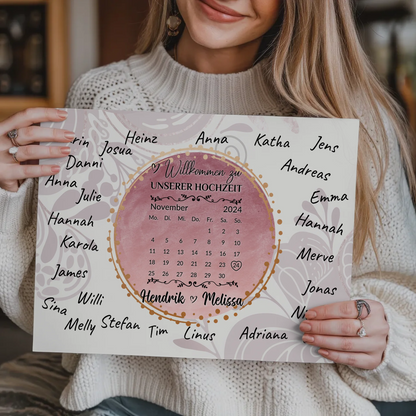 Heinz
Anna
Katha
Jens
Josua
Danni
Andreas
Anna
Julie
Emma
Hannah
Hannah
Karola
Merve
James
Jonas
Sina
Willi
Melly
Stefan
Tim
Linus
Adriana
Willkommen zu
UNSERER HOCHZEIT
November 2024
Mo. Di. Mi. Do. Fr. Sa. So.
1 2 3
4 5 6 7 8 9 10
11 12 13 14 15 16 17
18 19 20 21 22 23 24
25 26 27 28 29 30
Hendrik ♡ Melissa